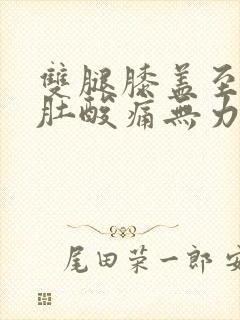 雙腿膝蓋至
肚酸痛無力
尾田栄一郎 安